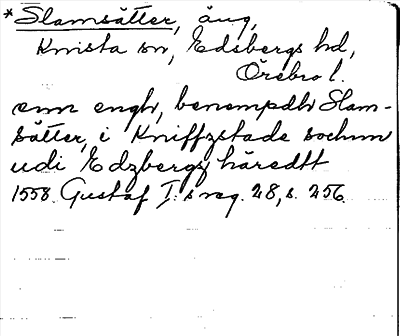 * Slamsätter, äng,
Knista sn, Edsbergs hd,
Örebro l.
enn engh, benempdh Slam-
sätter, i Kniffzstade sochnn
udi Edzbergz häredtt
1558. Gustaf I:s reg. 28, s. 256.